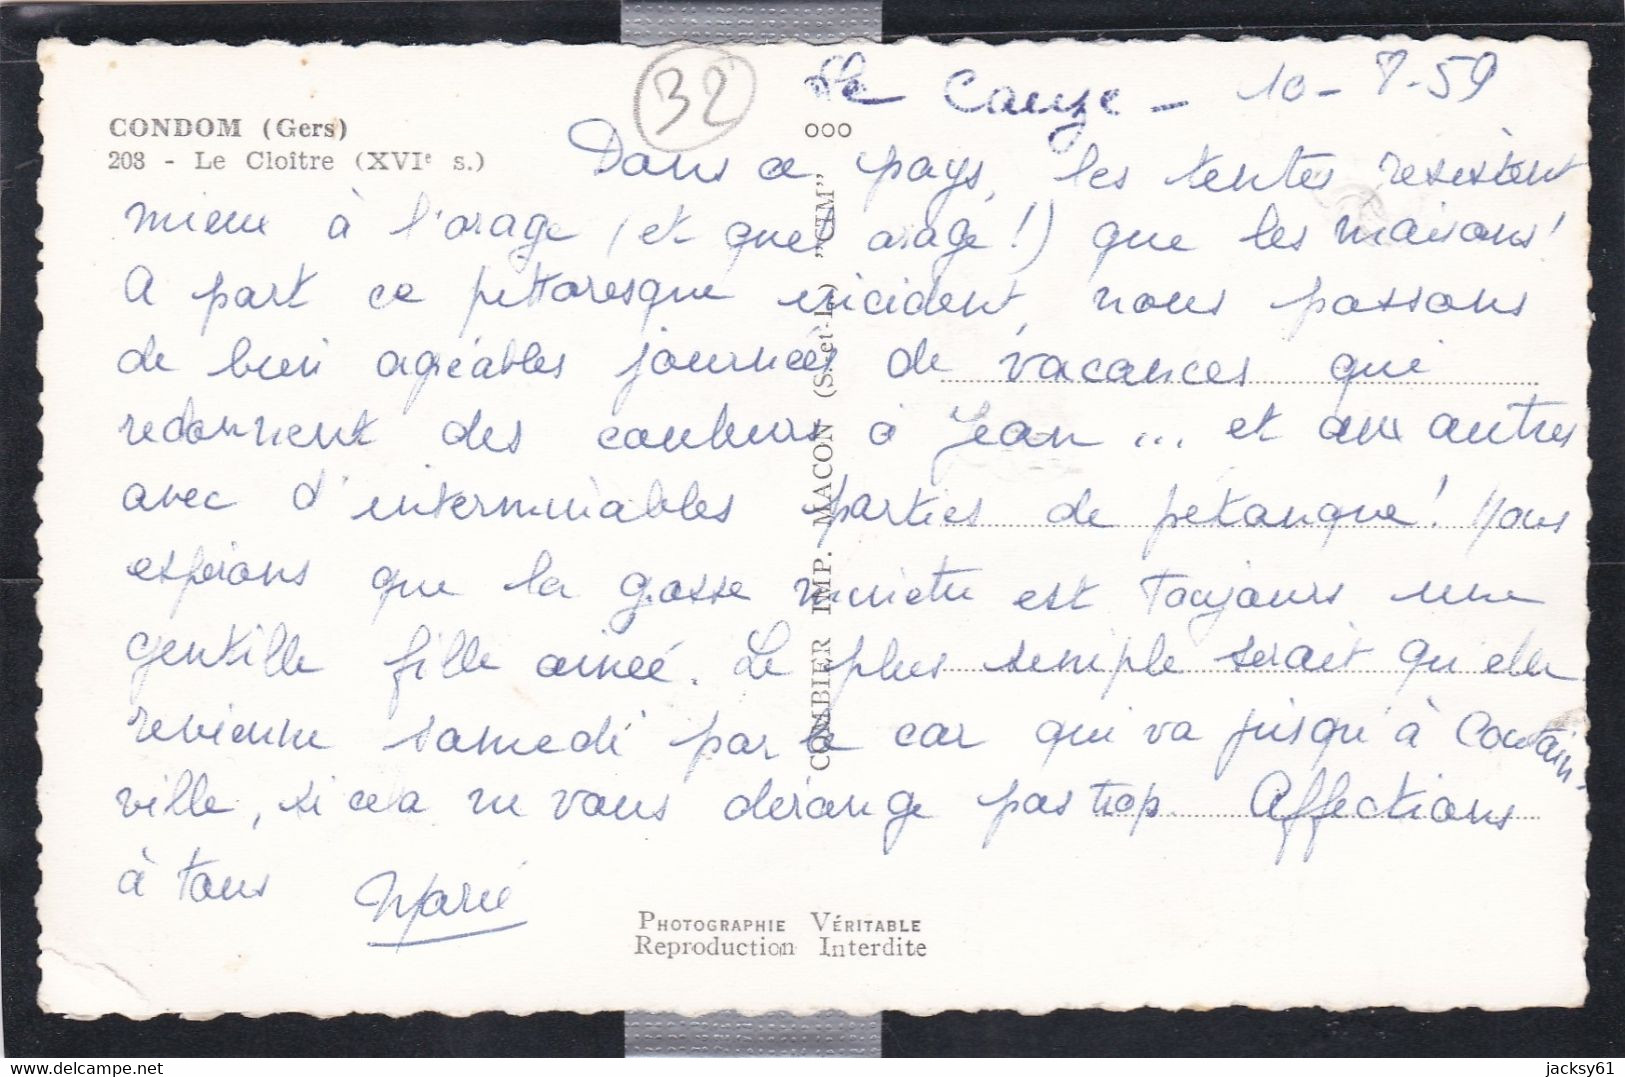 32
Le Cauze - 10-8-59
CONDOM (Gers)
203 - Le Cloître (XVIe s.)
Dans ce pays, les tentes résistent
mieux à l'orage (et quel orage!) que les maisons!
A part ce pittoresque incident, nous passons
de bien agréables journées de vacances qui
redonnent des couleurs à Jean ... et aux autres
avec d'interminables parties de pétanque! Nous
espérons que la gosse est toujours une
gentille fille ainée. Le plus simple serait qu'elle
revienne samedi par le car qui va jusqu'à Coutain-
ville, si cela ne vous dérange pas trop. Affections
à tous Marie
ooo
COMBIER IMP. MACON (S.-et-L.) "CIM"
PHOTOGRAPHIE VÉRITABLE
Reproduction Interdite
jacksy61